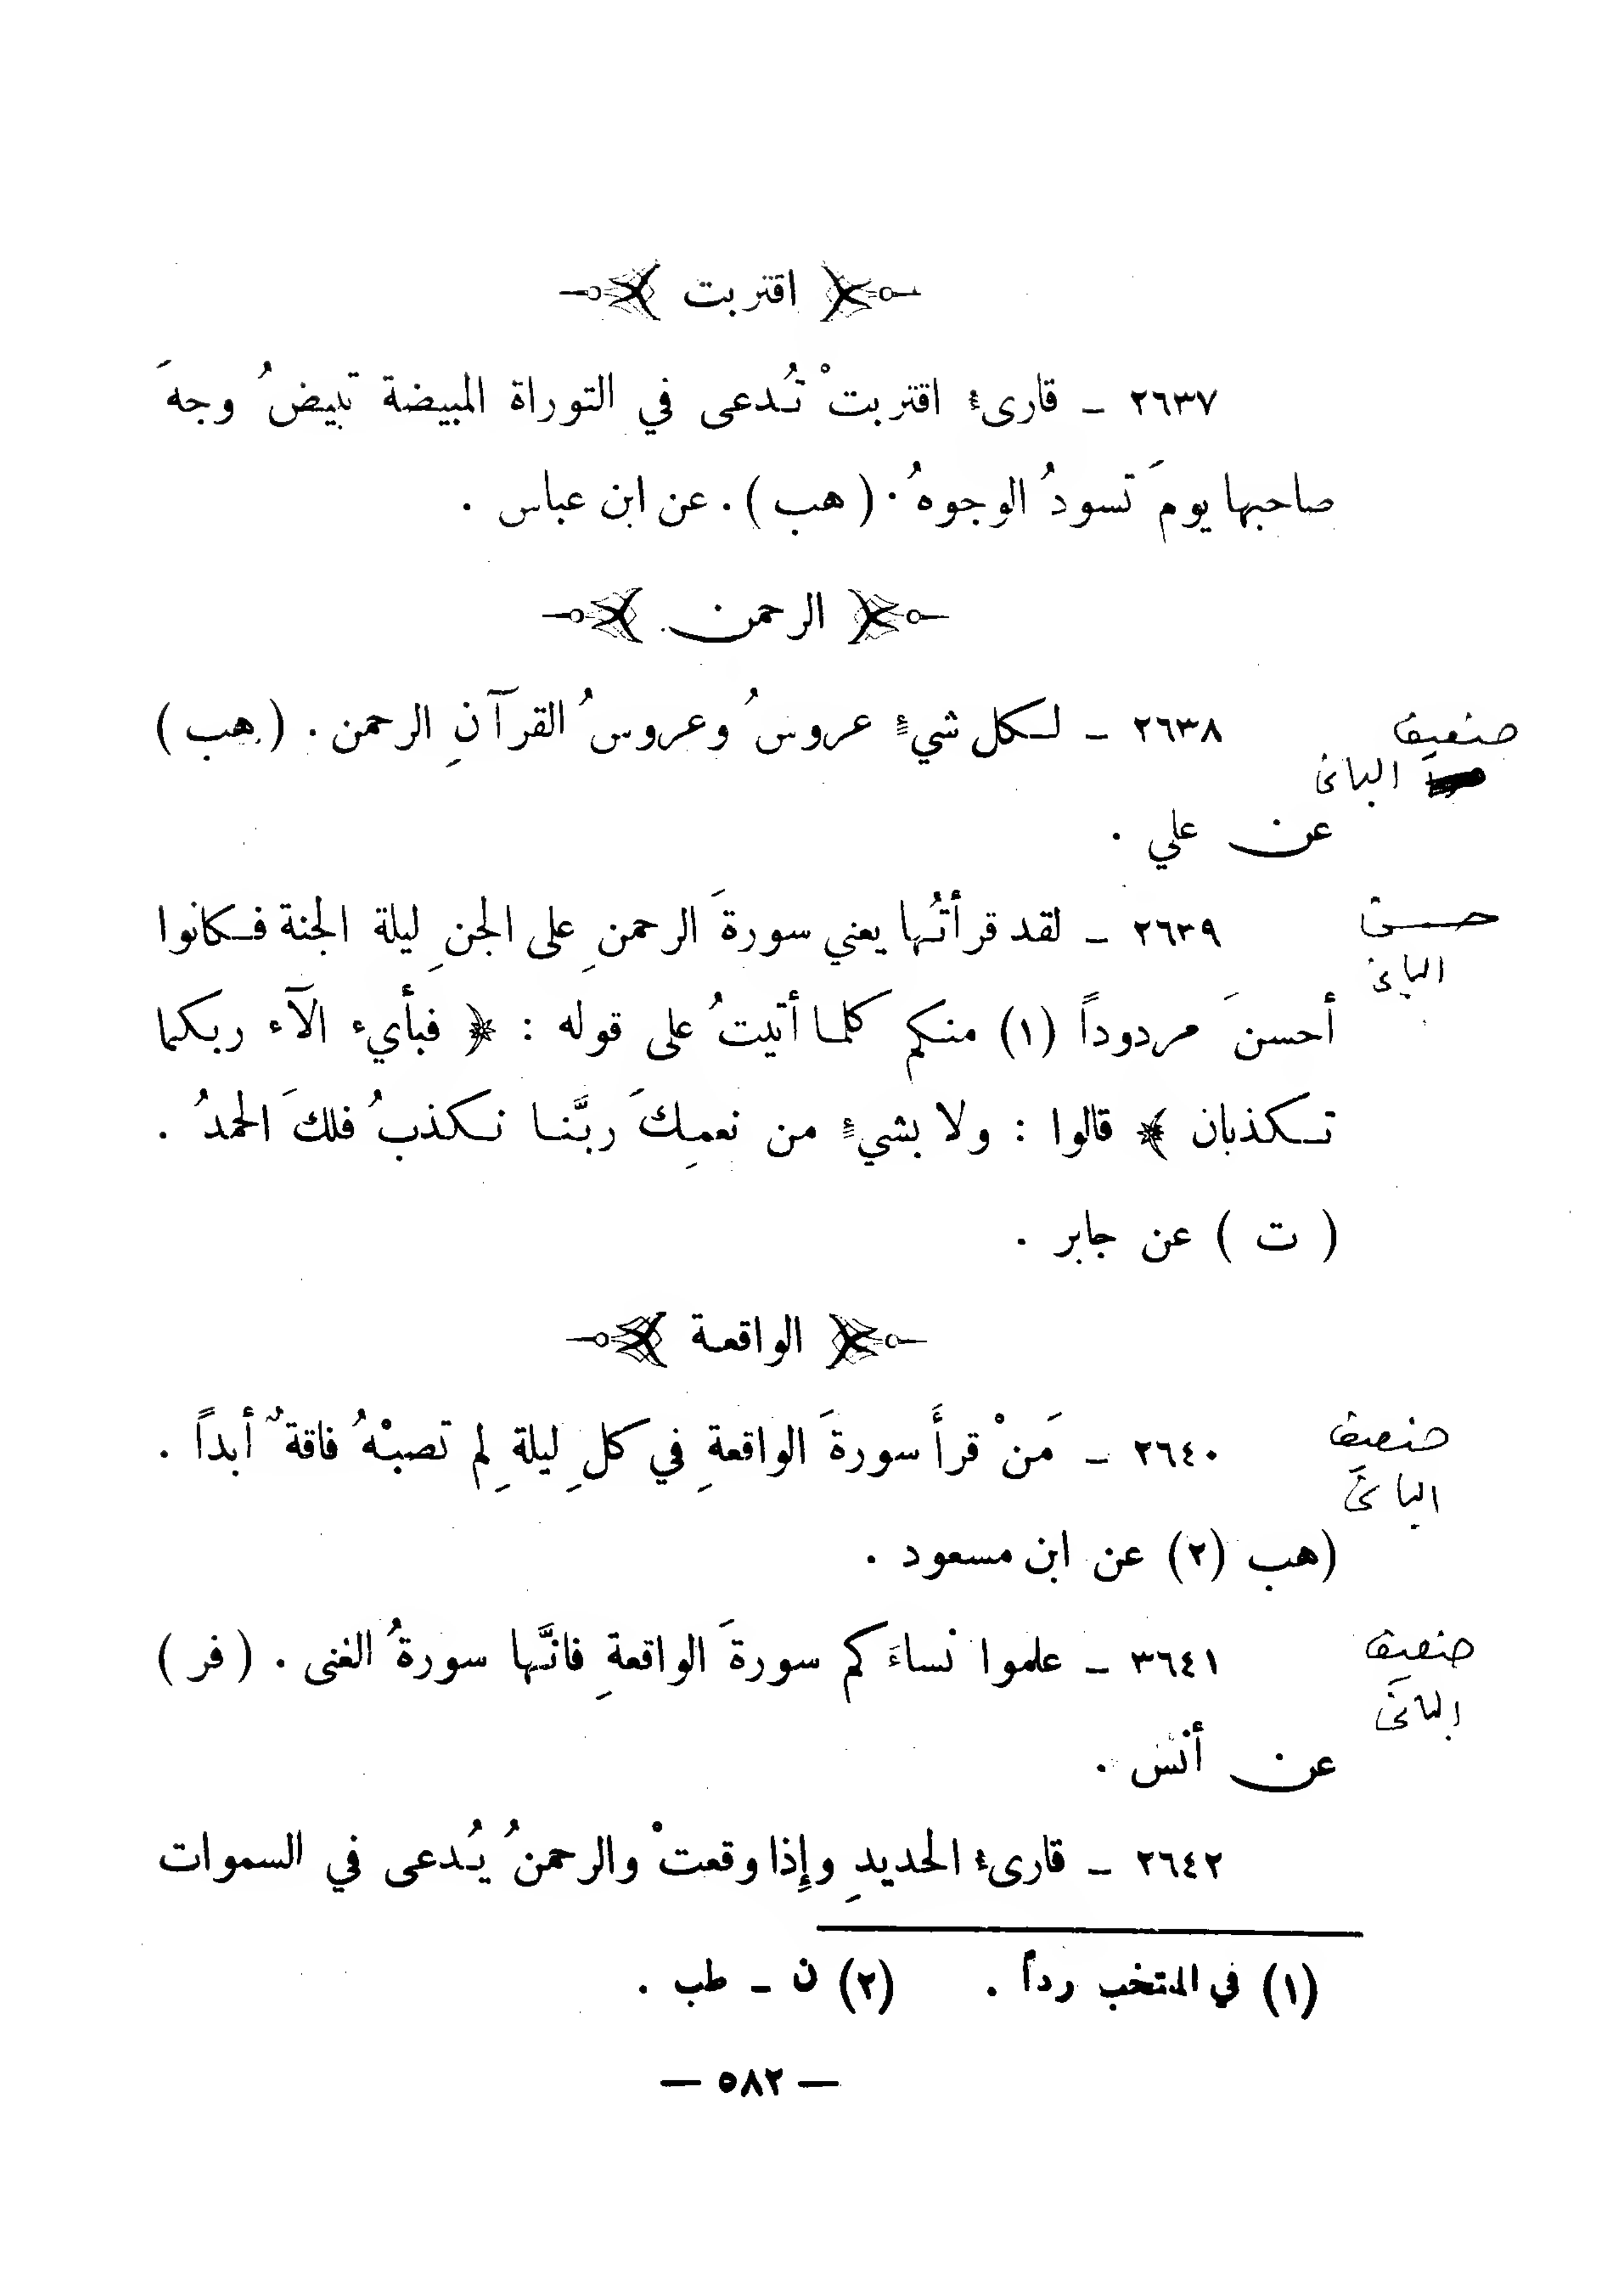 اقتربت
٢٦٣٧ ــ قارىء اقتربتْ تُدعى في التوراة المبيضة تبيضُ وجهَ
صاحبها يومَ تسودُ الوجوهُ . ( هب ) . عن ابن عباس .
الرحمن
٢٦٣٨ ــ لكل شيءٍ عروسُ وعروسُ القرآنِ الرحمن . ( هب )
ضعيف
البانى
عن علي .
٢٦٣٩ ــ لقد قرأتُها يعني سورةَ الرحمنِ على الجنِ ليلة الجنة فكانوا
حسن
البانى
أحسنَ مردوداً (١) منكم كلما أتيتُ على قوله : ﴿ فبأيء آلآء ربكما
تكذبان ﴾ قالوا : ولا بشيءٍ من نعمِكَ ربَّنا نكذبُ فلكَ الحمدُ .
( ت ) عن جابر .
الواقعة
٢٦٤٠ ــ مَنْ قرأَ سورةَ الواقعةِ في كلِ ليلةِ لم تصبْهُ فاقةٌ أبداً .
ضعيف
البانى
(هب (٢) عن ابن مسعود .
٣٦٤١ ــ علموا نساءَكم سورةَ الواقعةِ فانَّها سورةُ الغنى . ( فر )
ضعيف
البانى
عن أنس .
٢٦٤٢ ــ قارىء الحديدِ وإِذا وقعتْ والرحمنُ يُدعى في السموات
(١) في المنتخب رداً . (٢) ن ــ طب .
— ٥٨٢ —